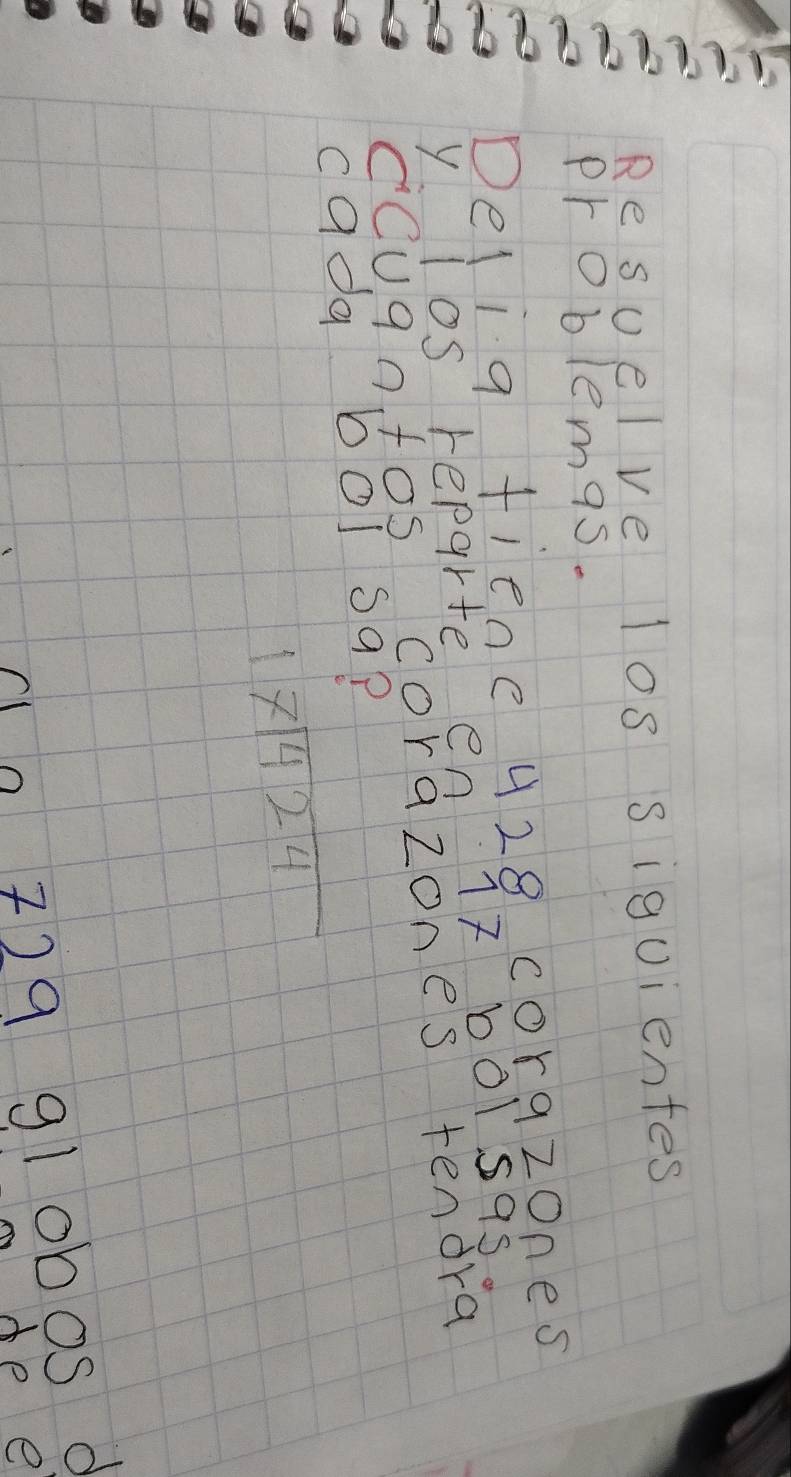 Resuelve los siguientes
problemas.
Delia tiene 428 corazones
y los reparte en 17 bolsas.
¿Cuantos corazones tendra
cada bolsa?
17 424
729 globos d
de e